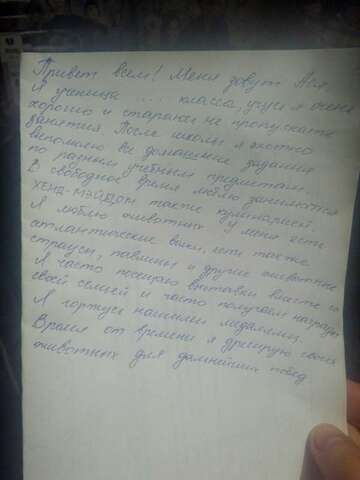 Привет всем! Меня зовут Ася,
Я ученица ... класса, учусь я очень
хорошо и стараюсь не пропускать
занятия. После школы я охотно
выполняю все домашние задания
по разным учебным предметам.
В свободное время люблю заниматься
ХЕНД-МЭЙДОМ также кулинарией.
Я люблю животных. У меня есть
атлантические быки, есть также
страусы, павлины и другие животные
Я часто посещаю выставки вместе со
своей семьей и часто получаем награды
Я горжусь нашими медалями.
Время от времени я дрессирую своих
животных для дальнейших побед